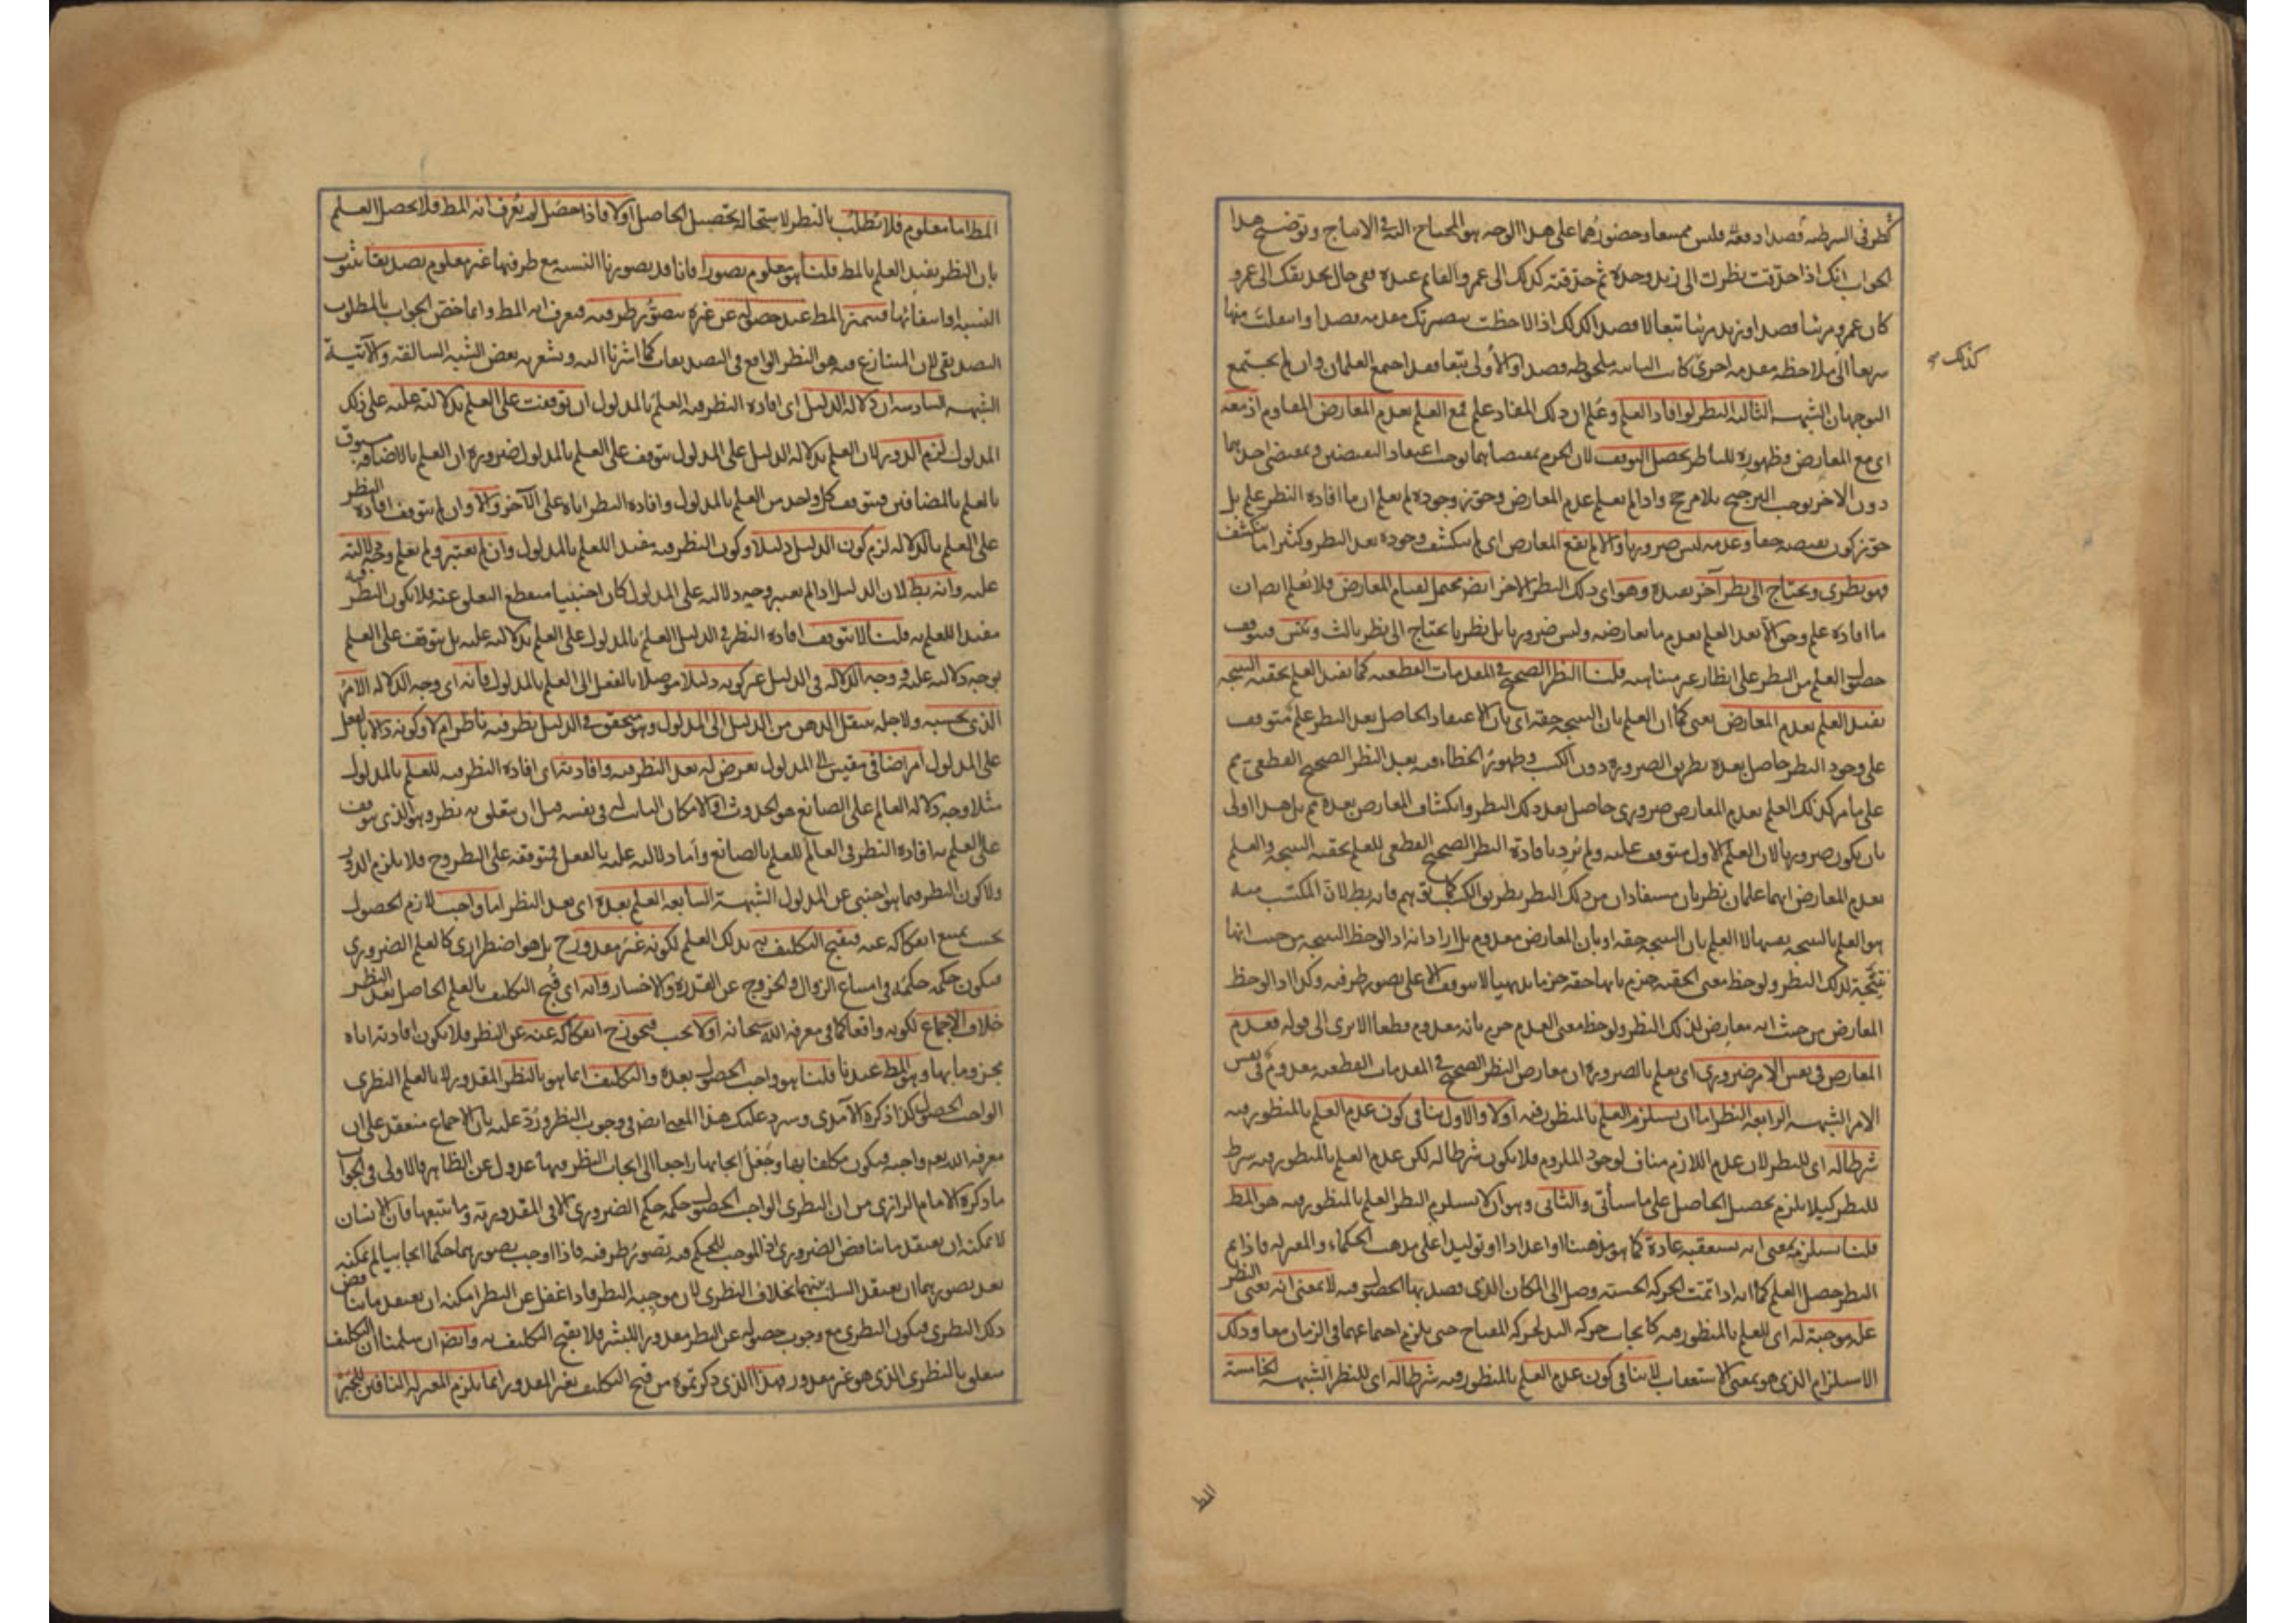 كطرفى الشرطية قصدا دفعة فليس ممتنعا وحضورهما على هذا الوجه هو المحتاج اليه فى الانتاج وتوضيح هذا
الجواب انك اذا حدقت نظرك الى زيد وحده ثم حدقته كذلك الى عمرو القائم عنده ففى حال تحديقك الى عمرو
كان عمرو مرئيا قصدا وزيد مرئيا تبعا لا قصدا كذلك اذا لاحظت ببصيرتك مقدمة قصدا وانتقلت منها
كذلك صح
سريعا الى ملاحظة مقدمة اخرى كانت الثانية ملحوظة قصدا والاولى تبعا فقد اجتمع العلمان وان لم يجتمع
التوجهان الشبهة الثالثة النظر لو افاد العلم وعلم ان ذلك المفاد علم فمع العلم بعدم المعارض المقاوم اذ معه
اى مع المعارض وظهوره للناظر يحصل التوقف لان الجزم بمقتضاهما يوجب اعتقاد النقيضين وبمقتضى احدهما
دون الاخر يوجب الترجيح بلا مرجح واذا لم يعلم عدم المعارض وجوز وجوده لم يعلم ان ما افاده النظر علم بل
جوز كون نقيضه حقا وعدمه ليس ضروريا والا لم يقع المعارض اى لم ينكشف وجوده بعد النظر وكثيرا ما ينكشف
فهو نظرى ويحتاج الى نظر آخر يفيده وهو اى ذلك النظر الاخر ايضا محتمل لقيام المعارض فلا يعلم ايضا ان
ما افاده علم وحق الا بعد العلم بعدم ما يعارضه وليس ضروريا بل نظريا يحتاج الى نظر ثالث ويتس فيتوقف
حصول العلم من النظر على انظار غير متناهية قلنا النظر الصحيح فى المقدمات القطعية كما يفيد العلم بحقية النتيجة
يفيد العلم بعدم المعارض يعنى كما ان العلم بان النتيجة حقة اى بان الاعتقاد الحاصل بعد النظر علم متوقف
على وجود النظر حاصل بعده بطريق الضرورة دون الكسب وظهور الخطاء فيه بعد النظر الصحيح القطعى مم
على ما مر كذلك العلم بعدم المعارض ضرورى حاصل بعد ذلك النظر وانكشاف المعارض بعده مم بل هذا اولى
بان يكون ضروريا لان العلم الاول متوقف عليه ولم يرد بافادة النظر الصحيح القطعى للعلم بحقية النتيجة والعلم
بعدم المعارض انهما علمان نظريان مستفادان من ذلك النظر بطريق الكسب كما توهم فانه بطلان المكتسب منه
هو العلم بالنتيجة نفسها لا العلم بان النتيجة حقة او بان المعارض معدوم بل اراد انه اذا لوحظ النتيجة من حيث انها
نتيجة لذلك النظر ولوحظ معنى الحقية جزم بانها حقة جزما بديهيا لا يتوقف الا على تصور طرفيه وكذا اذا لوحظ
المعارض من حيث انه معارض لذلك النظر ولوحظ معنى العدم جزم بانه معدوم قطعا الا ترى الى قوله فعدم
المعارض فى نفس الامر ضرورى اى يعلم بالضرورة ان معارض النظر الصحيح فى المقدمات القطعية معدوم فى نفس
الامر الشبهة الرابعة النظر اما ان يستلزم العلم بالمنظور فيه اولا والاول ينافى كون عدم العلم بالمنظور فيه
شرطا له اى للنظر لان عدم اللازم مناف لوجود الملزوم فلا يكون شرطا له لكن عدم العلم بالمنظور فيه شرط
للنظر كيلا يلزم تحصيل الحاصل على ما سيأتى والثانى وهو ان لا يستلزم النظر العلم بالمنظور فيه هو المط
قلنا يستلزمه بمعنى انه يستعقبه عادة كما هو مذهبنا او اعدادا او توليدا على مذهب الحكماء والمعتزلة فاذا تم
النظر حصل العلم كما انه اذا تمت الحركة الحسية وصل الى المكان الذى قصد بها الحصول فيه لا بمعنى انه يعنى النظر
علة موجبة له اى للعلم بالمنظور فيه كايجاب حركة اليد لحركة المفتاح حتى يلزم اجتماعهما فى الزمان معا وذلك
الاستلزام الذى هو بمعنى الاستعقاب لا ينافى كون عدم العلم بالمنظور فيه شرطا له اى للنظر الشبهة الخامسة
المط
المط اما معلوم فلا يطلب بالنظر لاستحالة تحصيل الحاصل اولا فاذا حصل لم يعرف انه المط فلا يحصل العلم
بان النظر يفيد العلم بالمط قلنا هو معلوم تصورا فانا قد تصورنا النسبة مع طرفيها غير معلوم تصديقا بثبوت
النسبة او انتفائها فيتميز المط عند حصوله عن غيره بتصور طرفيه فيعرف انه المط وانما خص الجواب بالمطلوب
التصديقى لان المتنازع فيه هو النظر الواقع فى التصديقات كما اشرنا اليه ويشعر به بعض الشبه السالفة والآتية
الشبهة السادسة ان دلالة الدليل اى افادة النظر فيه العلم بالمدلول ان توقفت على العلم بدلالته عليه على ذلك
المدلول لزم الدور لان العلم بدلالة الدليل على المدلول يتوقف على العلم بالمدلول ضرورة ان العلم بالاضافة مسبوق
بالعلم بالمضافين فيتوقف كل واحد من العلم بالمدلول وافادة النظر اياه على الآخر والا وان لم يتوقف افادة النظر
على العلم بالدلالة لزم كون الدليل دليلا وكون النظر فيه مفيدا للعلم بالمدلول وان لم يعتبر ولم يعلم وجه دلالته
عليه وانه بط لان الدليل اذا لم يعتبر وجه دلالته على المدلول كان اجنبيا منقطع التعلق عنه فلا يكون النظر فيه
مفيدا للعلم به قلنا لا يتوقف افادة النظر فى الدليل العلم بالمدلول على العلم بدلالته عليه بل يتوقف على العلم
بوجه دلالته عليه ووجه الدلالة فى الدليل غير كونه دليلا موصلا بالفعل الى العلم بالمدلول فانه اى وجه الدلالة الامر
الذى بحسبه ولاجله ينتقل الذهن من الدليل الى المدلول وهو متحقق فى الدليل نظر فيه ناظر ام لا وكونه دالا بالفعل
على المدلول امر اضافى مقيس الى المدلول يعرض له بعد النظر فيه وافادته اى افادة النظر فيه للعلم بالمدلول
مثلا وجه دلالة العالم على الصانع هو الحدوث او الامكان الثابت له فى نفسه قبل ان يتعلق به نظر وهو الذى يتوقف
على العلم به افادة النظر فى العالم للعلم بالصانع واما دلالته عليه بالفعل فمتوقفة على النظر وح فلا يلزم الدور
ولا كون النظر فيما هو اجنبى عن المدلول الشبهة السابعة العلم بعده اى بعد النظر اما واجب لازم الحصول
بحيث يمتنع انفكاكه عنه فيقبح التكليف به بذلك العلم لكونه غير مقدور ح بل هو اضطرارى كالعلم الضرورى
فيكون حكمه حكمه فى امتناع الزوال والخروج عن القدرة والاختيار وانه اى قبح التكليف بالعلم الحاصل بعد النظر
خلاف الاجماع لكونه واقعا كما فى معرفة الله سبحانه اولا يجب فيجوز ح انفكاكه عنه عن النظر فلا يكون افادته اياه
مجزوما بها وهو المط عندنا قلنا هو واجب الحصول بعده والتكليف انما هو بالنظر المقدور لا بالعلم النظرى
الواجب الحصول كذا ذكره الآمدى وسيرد عليك هذا المعنى ايضا فى وجوب النظر ورد عليه بان الاجماع منعقد على ان
معرفة الله تعم واجبة فيكون مكلفا بها وجعل ايجابها راجعا الى ايجاب النظر فيها عدول عن الظاهر فالاولى فى الجواب
ما ذكره الامام الرازى من ان النظرى الواجب الحصول حكمه حكم الضرورى الا فى المقدورية وما يتبعها فان الانسان
لا يمكنه ان يعتقد ما يناقض الضرورى اذ الموجب للحكم فيه تصور طرفيه فاذا اوجب تصورهما حكما ايجابيا لم يمكنه
بعد تصورهما ان يعتقد السلب بينهما بخلاف النظرى لان موجبه النظر فاذا غفل عن النظر امكنه ان يعتقد ما يناقض
ذلك النظرى فيكون النظرى مع وجوب حصوله عن النظر مقدورا للبشر فلا يقبح التكليف به وايضا ان سلمنا ان التكليف
متعلق بالنظرى الذى هو غير مقدور فهذا الذى ذكرتموه من قبح التكليف بغير المقدور انما يلزم المعتزلة النافين للجبر